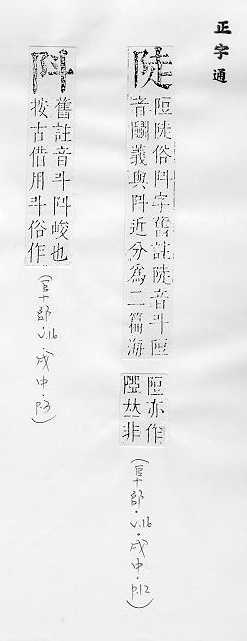 正字通
陡
陡俗阧字舊註陡音斗
音鬭義與阧近分為二篇海
亦作
𠀤非
(v.16·戌中·p.12)
阧
舊註音斗阧峻也
按古借用斗俗作
(v.16·戌中·p.3)